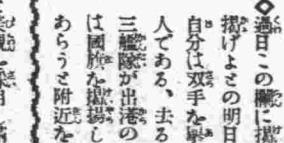 ◇過日この欄に掲
揭げよとの明日
自分は双手を擧
人である、去る
三艦隊が出港の
は國旗を揭揚し
あらうと附近を